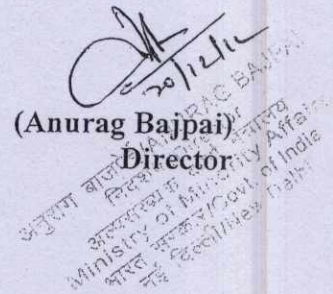 20/12/12
(Anurag Bajpai)
Director
अनुराग बाजपेई/ANURAG BAJPAI
निदेशक/Director
अल्पसंख्यक कार्य मंत्रालय
Ministry of Minority Affairs
भारत सरकार/Govt. of India
नई दिल्ली/New Delhi